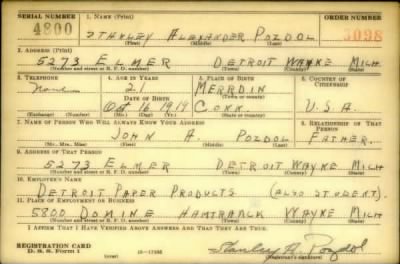 SERIAL NUMBER 1. NAME (Print) ORDER NUMBER
4800 STANLEY ALEXANDER POZDOL 3098
(First) (Middle) (Last)
2. ADDRESS (Print)
5273 ELMER DETROIT WAYNE MICH
(Number and street or R. F. D. number) (Town) (County) (State)
3. TELEPHONE 4. AGE IN YEARS 5. PLACE OF BIRTH 6. COUNTRY OF CITIZENSHIP
None 21 MERRDIN
DATE OF BIRTH (Town or county)
Oct 16 1919 CONN. U.S.A.
(Exchange) (Number) (Mo.) (Day) (Yr.) (State or country)
7. NAME OF PERSON WHO WILL ALWAYS KNOW YOUR ADDRESS 8. RELATIONSHIP OF THAT PERSON
JOHN A. POZDOL FATHER.
(Mr., Mrs., Miss) (First) (Middle) (Last)
9. ADDRESS OF THAT PERSON
5273 ELMER DETROIT WAYNE MICH
(Number and street or R. F. D. number) (Town) (County) (State)
10. EMPLOYER'S NAME
DETROIT PAPER PRODUCTS (ALSO STUDENT).
11. PLACE OF EMPLOYMENT OR BUSINESS
5800 DOMINE HAMTRAMCK WAYNE MICH
(Number and street or R. F. D. number) (Town) (County) (State)
I AFFIRM THAT I HAVE VERIFIED ABOVE ANSWERS AND THAT THEY ARE TRUE.
REGISTRATION CARD
D. S. S. Form 1 (over) Stanley A Pozdol
(Registrant's signature)